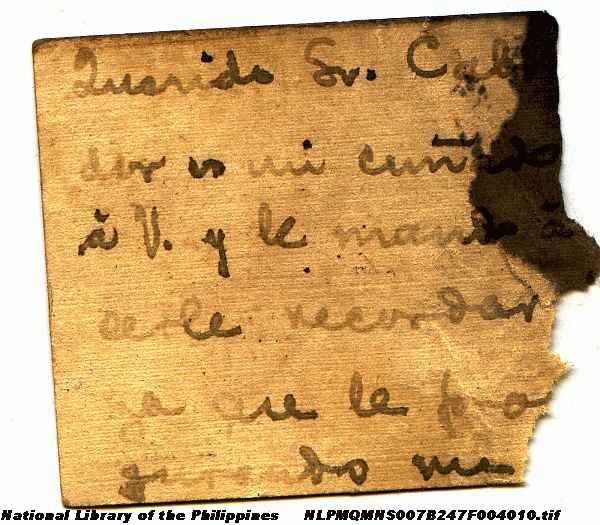 Querido Sr. Cab
dor es mi cuñado
á V. y le mando á
le recordar
ya que le
mi
National Library of the Philippines NLPMQMNS007B247F004010.tif